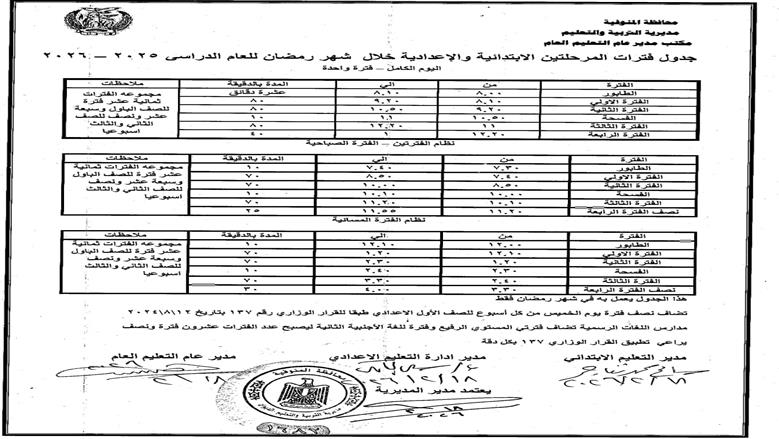 محافظة المنوفية
مديرية التربية والتعليم
مكتب مدير عام التعليم العام
جدول فترات المرحلتين الابتدائية والإعدادية خلال شهر رمضان للعام الدراسى ٢٠٢٥ – ٢٠٢٦
اليوم الكامل – فترة واحدة
الفترة من الي المدة بالدقيقة ملاحظات
الطابور ٨,٠٠ ٨,١٠ عشرة دقائق
الفترة الاولي ٨,١٠ ٩,٢٠ ٨٠
الفترة الثانية ٩,٢٠ ١٠,٥٠ ٨٠
الفسحة ١٠,٥٠ ١١ ١٠
الفترة الثالثة ١١ ١٢,٢٠ ٨٠
الفترة الرابعة ١٢,٢٠ ١ ٤٠
مجموعه الفترات
ثمانية عشر فترة
للصف الباول وسبعة
عشر ونصف للصف
الثاني والثالث
اسبوعيا
نظام الفترتين – الفترة الصباحية
الفترة من الي المدة بالدقيقة ملاحظات
الطابور ٧,٣٠ ٧,٤٠ ١٠
الفترة الاولي ٧,٤٠ ٨,٥٠ ٧٠
الفترة الثانية ٨,٥٠ ١٠,٠٠ ٧٠
الفسحة ١٠,٠٠ ١٠,١٠ ١٠
الفترة الثالثة ١٠,١٠ ١١,٢٠ ٧٠
نصف الفترة الرابعة ١١,٢٠ ١١,٥٥ ٢٥
مجموعه الفترات ثمانية
عشر فترة للصف الباول
وسبعة عشر ونصف
للصف الثاني والثالث
اسبوعيا
نظام الفترة المسائية
الفترة من الي المدة بالدقيقة ملاحظات
الطابور ١٢,٠٠ ١٢,١٠ ١٠
الفترة الاولي ١٢,١٠ ١,٢٠ ٧٠
الفترة الثانية ١,٢٠ ٢,٣٠ ٧٠
الفسحة ٢,٣٠ ٢,٤٠ ١٠
الفترة الثالثة ٢,٤٠ ٣,٣٠ ٧٠
نصف الفترة الرابعة ٣,٣٠ ٤,٠٠ ٣٠
مجموعه الفترات ثمانية
عشر فترة للصف الباول
وسبعة عشر ونصف
للصف الثاني والثالث
اسبوعيا
هذا الجدول يعمل به في شهر رمضان فقط
تضاف نصف فترة يوم الخميس من كل أسبوع للصف الأول الاعدادي طبقا للقرار الوزاري رقم ١٣٧ بتاريخ ٢٠٢٤/٨/١٢
مدارس اللغات الرسمية تضاف فترتي المستوي الرفيع وفترة للغة الأجنبية الثانية ليصبح عدد الفترات عشرون فترة ونصف
يراعي تطبيق القرار الوزاري ١٣٧ بكل دقة
مدير التعليم الابتدائي مدير ادارة التعليم الاعدادي مدير عام التعليم العام
يعتمد مدير المديرية
محافظة المنوفية